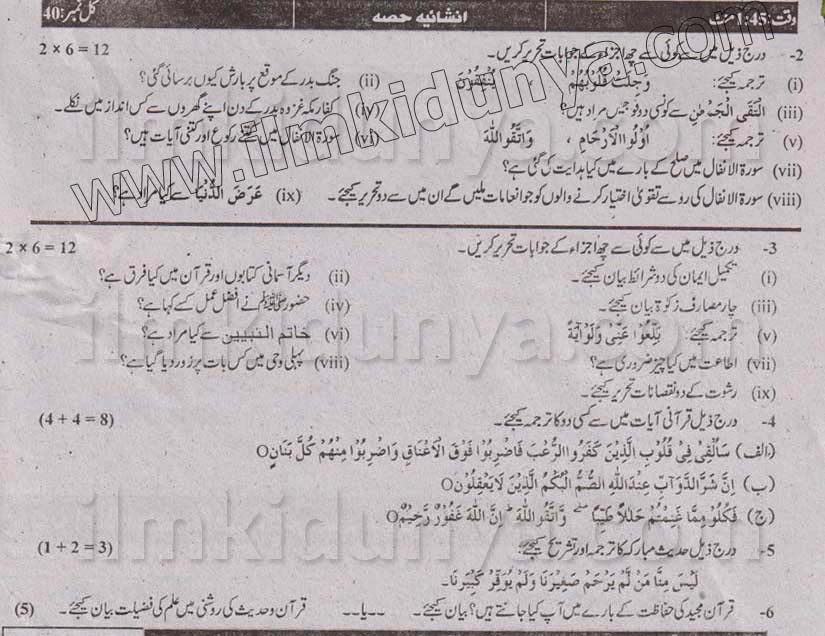 وقت: 1:45 منٹ انشائیہ حصہ کل نمبر: 40
2- درج ذیل میں سے کوئی سے چھ اجزاء کے جوابات تحریر کریں۔ 2 × 6 = 12
(i) ترجمہ کیجئے: وَجِلَتْ قُلُوْبُهُمْ (ii) جنگ بدر کے موقع پر بارش کیوں برسائی گئی؟
(iii) اَلْتَقَى الْجَمْعٰنِ سے کونسی دو فوجیں مراد ہیں؟ (iv) کفار مکہ غزوہ بدر کے دن اپنے گھروں سے کس انداز میں نکلے۔
(v) ترجمہ کیجئے: اُولُوا الْاَرْحَامِ ، وَاتَّقُوا اللّٰهَ (vi) سورۃ الانفال میں کتنے رکوع اور کتنی آیات ہیں؟
(vii) سورۃ الانفال میں صلح کے بارے میں کیا ہدایت کی گئی ہے؟
(viii) سورۃ الانفال کی رو سے تقویٰ اختیار کرنے والوں کو جو انعامات ملیں گے ان میں سے دو تحریر کیجئے۔ (ix) عَرَضَ الدُّنْيَا سے کیا مراد ہے؟
3- درج ذیل میں سے کوئی سے چھ اجزاء کے جوابات تحریر کریں۔ 2 × 6 = 12
(i) تکمیل ایمان کی دو شرائط بیان کیجئے۔ (ii) دیگر آسمانی کتابوں اور قرآن میں کیا فرق ہے؟
(iii) چار مصارف زکوٰۃ بیان کیجئے۔ (iv) حضور ﷺ نے افضل عمل کسے کہا ہے؟
(v) ترجمہ کیجئے بَلِّغُوْا عَنِّىْ وَلَوْ اٰيَةً (vi) خاتم النبیین سے کیا مراد ہے؟
(vii) اطاعت میں کیا چیز ضروری ہے؟ (viii) پہلی وحی میں کس بات پر زور دیا گیا ہے؟
(ix) رشوت کے دو نقصانات تحریر کیجئے۔
4- درج ذیل قرآنی آیات میں سے کسی دو کا ترجمہ کیجئے۔ (4 + 4 = 8)
(الف) سَاُلْقِىْ فِىْ قُلُوْبِ الَّذِيْنَ كَفَرُوا الرُّعْبَ فَاضْرِبُوْا فَوْقَ الْاَعْنَاقِ وَاضْرِبُوْا مِنْهُمْ كُلَّ بَنَانٍO
(ب) اِنَّ شَرَّ الدَّوَآبِّ عِنْدَ اللّٰهِ الصُّمُّ الْبُكْمُ الَّذِيْنَ لَا يَعْقِلُوْنَO
(ج) فَكُلُوْا مِمَّا غَنِمْتُمْ حَلٰلًا طَيِّبًا وَّاتَّقُوا اللّٰهَ اِنَّ اللّٰهَ غَفُوْرٌ رَّحِيْمٌO
5- درج ذیل حدیث مبارکہ کا ترجمہ اور تشریح کیجئے: (1 + 2 = 3)
لَيْسَ مِنَّا مَنْ لَّمْ يَرْحَمْ صَغِيْرَنَا وَلَمْ يُوَقِّرْ كَبِيْرَنَا۔
6- قرآن مجید کی حفاظت کے بارے میں آپ کیا جانتے ہیں؟ بیان کیجئے۔ ۔۔یا۔۔ قرآن و حدیث کی روشنی میں علم کی فضیلت بیان کیجئے۔ (5)
www.ilmkidunya.com
ilmkidunya.com
ilmkidunya.com
ilmkidunya.com